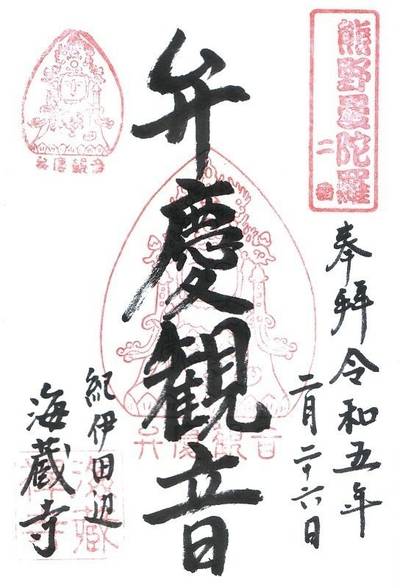 熊野曼陀羅
二番
奉拝令和五年
二月二十六日
弁慶観音
弁慶観音
弁慶観音
紀伊田辺
海蔵寺